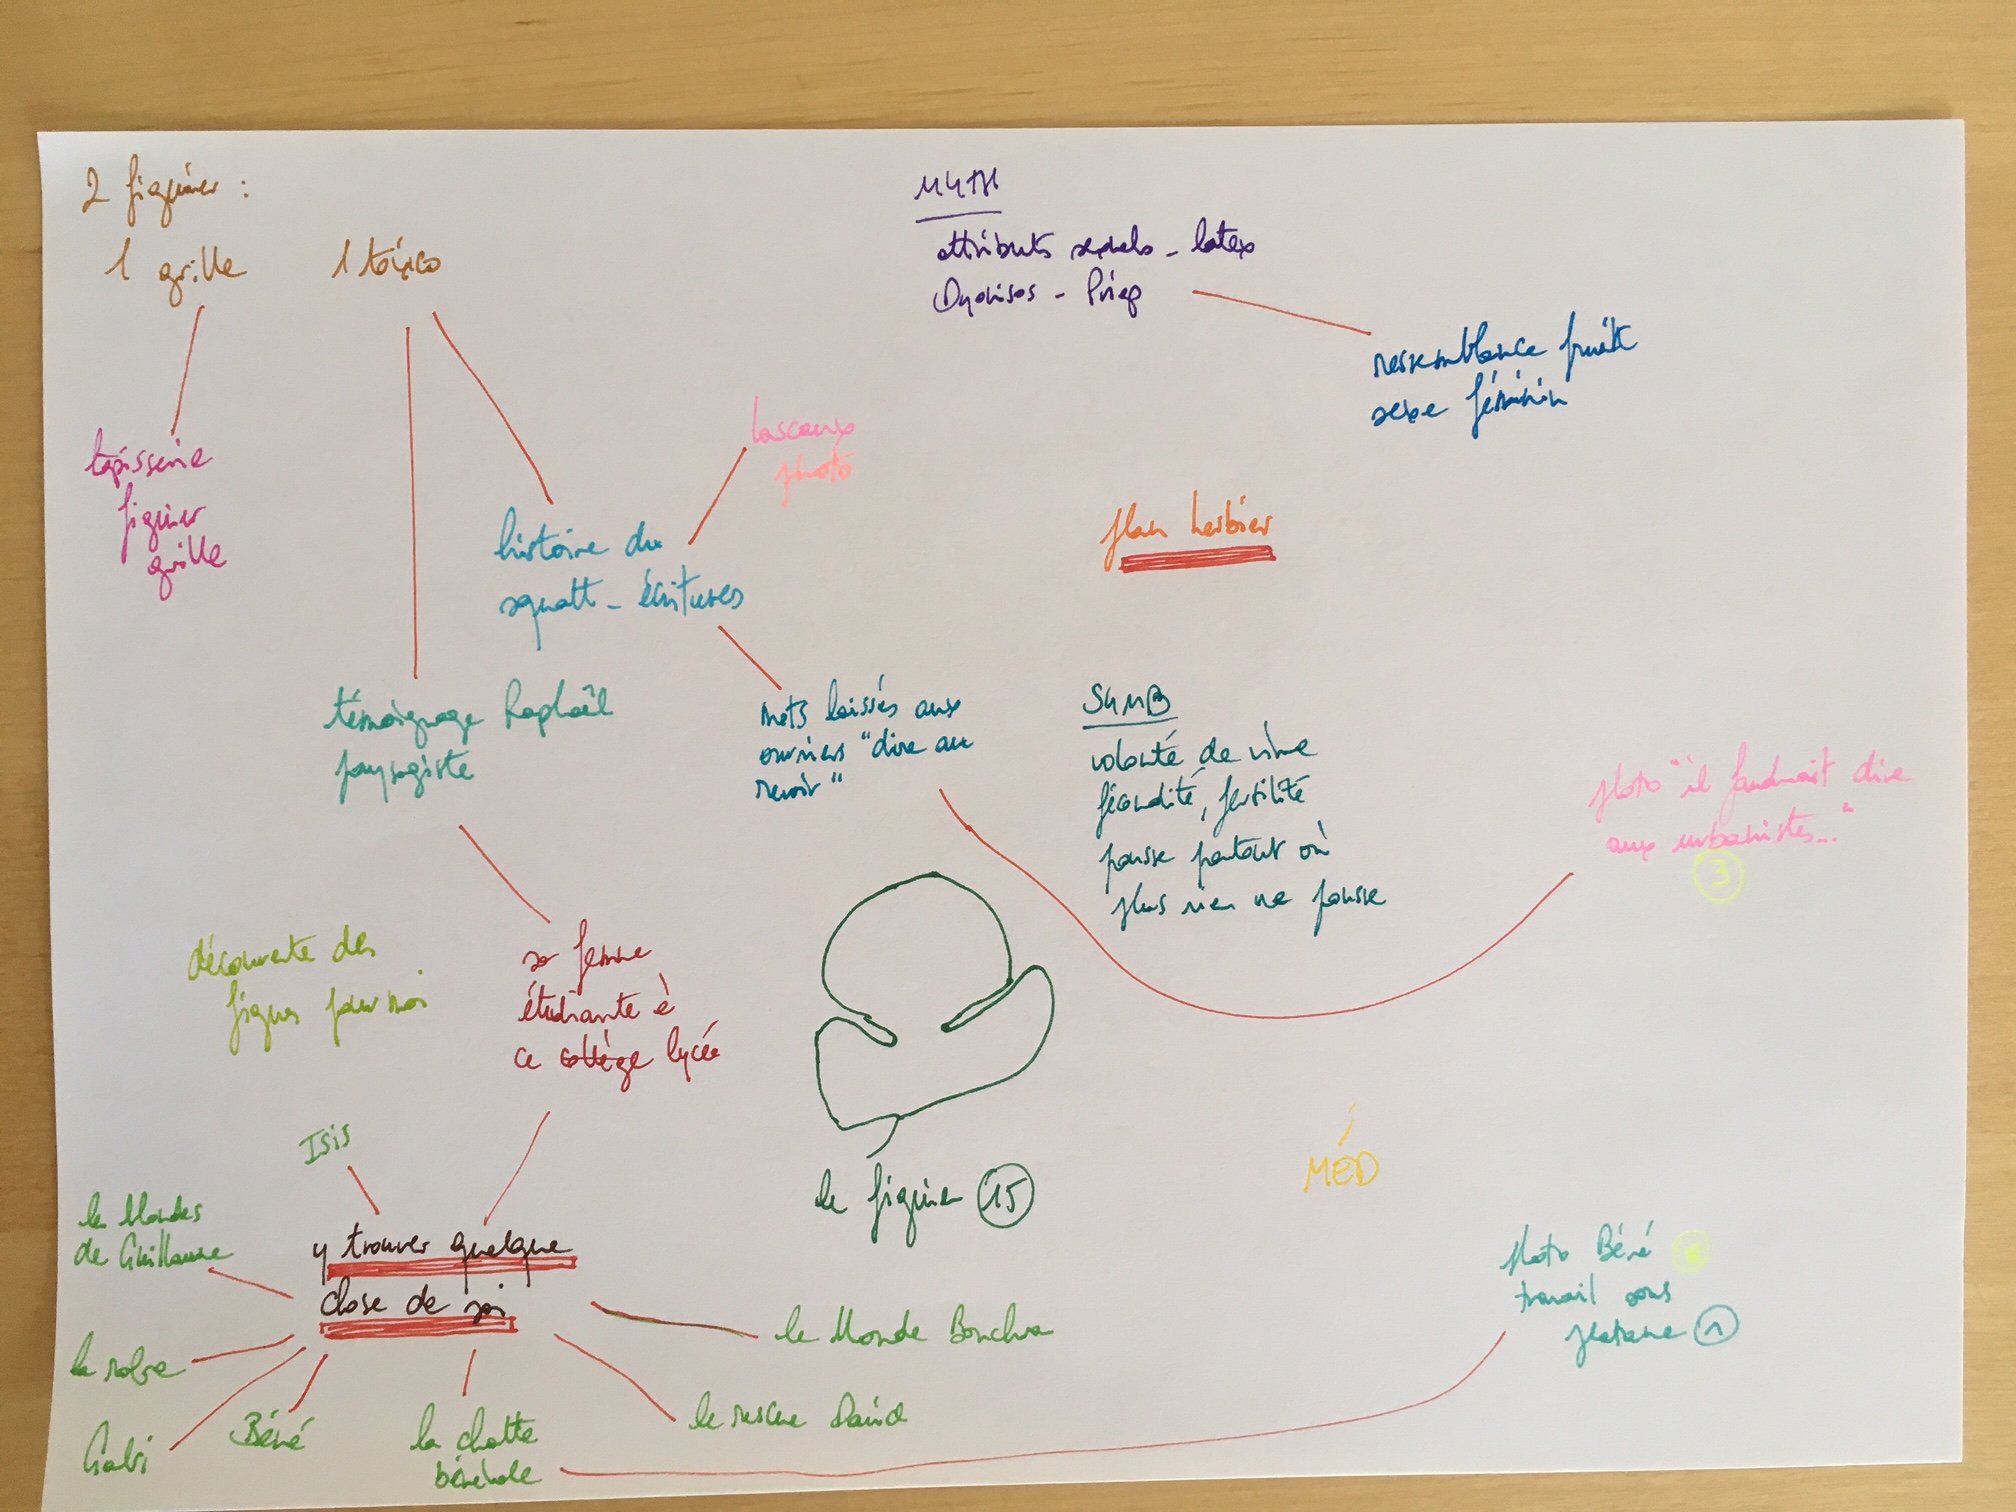 2 figuier :
1 grille
1 toxico
MYTH
attributs sexuels - latex
Dyonisos - Priap
ressemblance fruit
sexe féminin
tapisserie
figuier
grille
Lascaux
photo
histoire du
squatt - écritures
plan herbier
témoignage Raphaël
paysagiste
mots laissés aux
ouvriers "dire au
revoir"
SYMB
volonté de vivre
fécondité, fertilité
pousse partout où
plus rien ne pousse
photo "il faudrait dire
aux urbanistes..."
3
découverte des
figues pour moi
sa femme
étudiante à
ce collège lycée
Isis
le figuier 15
MÉD
le Mondes
de Guillaume
y trouver quelque
chose de soi
photo Béné
travail sous
platane 1
le Monde
la robe
Gabi
Béné
la chatte
le David